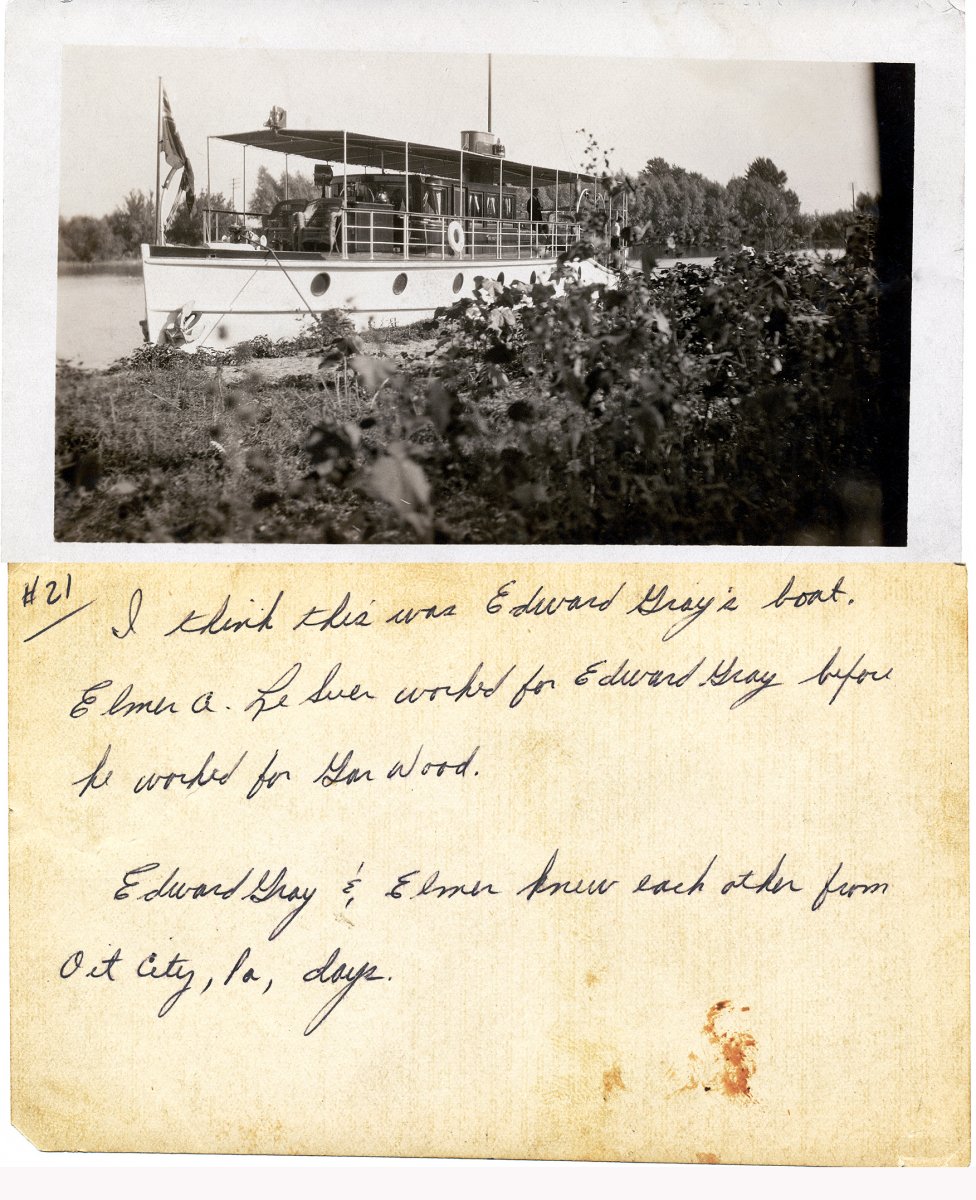 #21
I think this was Edward Gray's boat.
Elmer A. Le Suer worked for Edward Gray before
he worked for Gar Wood.
Edward Gray & Elmer knew each other from
Oit City, Pa, days.